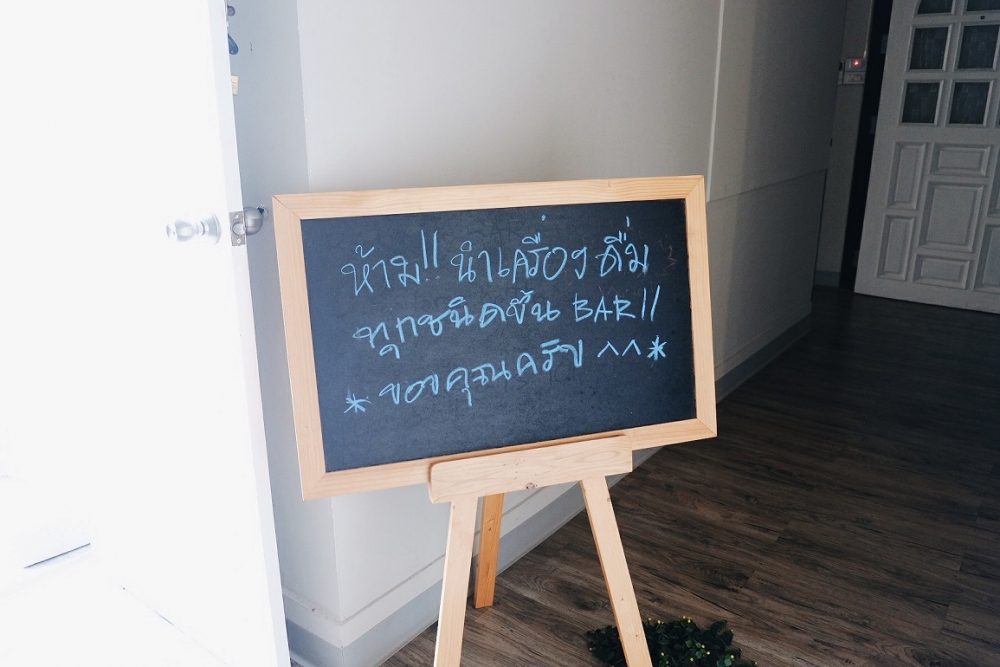 ห้าม!! นำเครื่องดื่ม
ทุกชนิดขึ้น BAR!!
* ขอบคุณครับ ^^ *